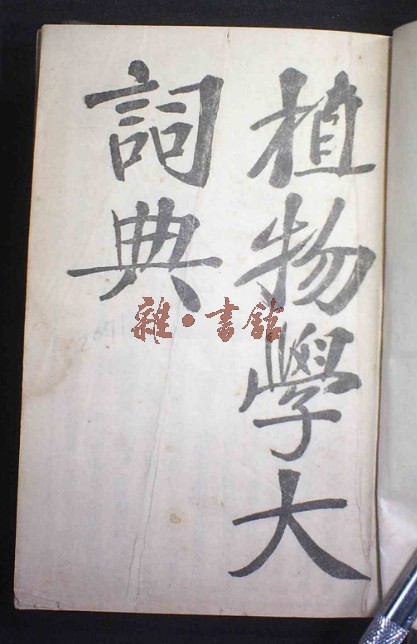 植物學大
詞典
雜·書館